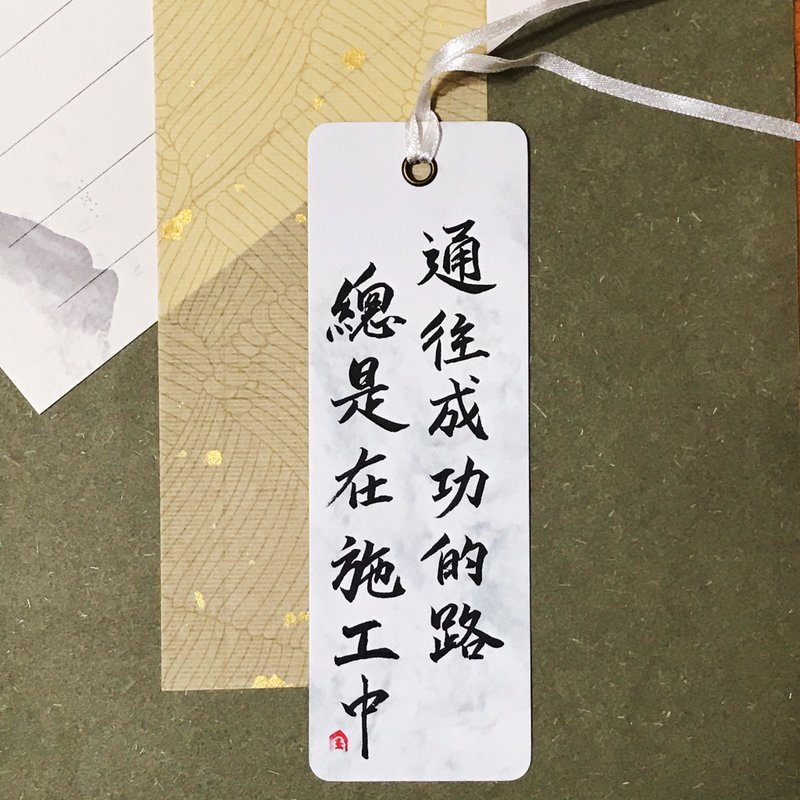 通往成功的路
總是在施工中